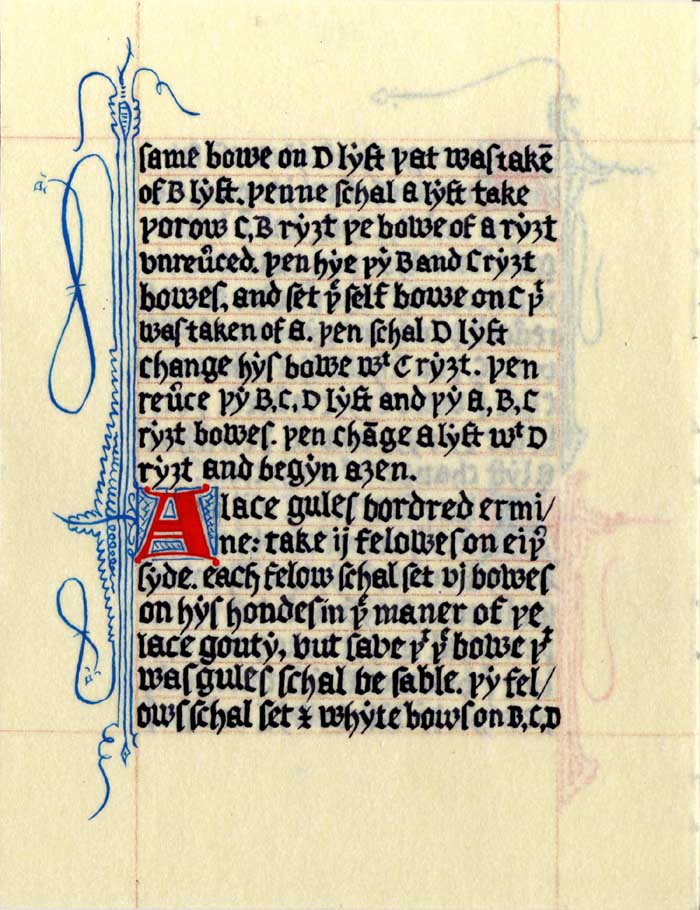 ſame bowe on D lẏft þat waſ takē
of B lẏft. þenne ſchal A lẏft take
þorow C, B rẏȝt þe bowe of A rẏȝt
vnreu̓ced. þen hẏe þẏ B and C rẏȝt
boweſ, and ſet þᵗ ſelf bowe on C þᵗ
waſ taken of A. þen ſchal D lẏft
change hẏſ bowe wᵗ C rẏȝt. þen
reu̓ce þẏ B, C, D lẏft and þẏ A, B, C
rẏȝt boweſ. þen chāge A lẏft wᵗ D
rẏȝt and begẏn aȝen.
A lace guleſ bordred ermi/
ne: take ij feloweſ on eiþ̓
ſẏde. each felow ſchal ſet vj boweſ
on hẏſ hondeſ in þᵉ maner of þe
lace goutẏ, but ſave þᵗ þᵉ bowe þᵗ
waſ guleſ ſchal be ſable. þẏ fel/
owſ ſchal ſet ⁊ whẏte bowſ on B, C, D